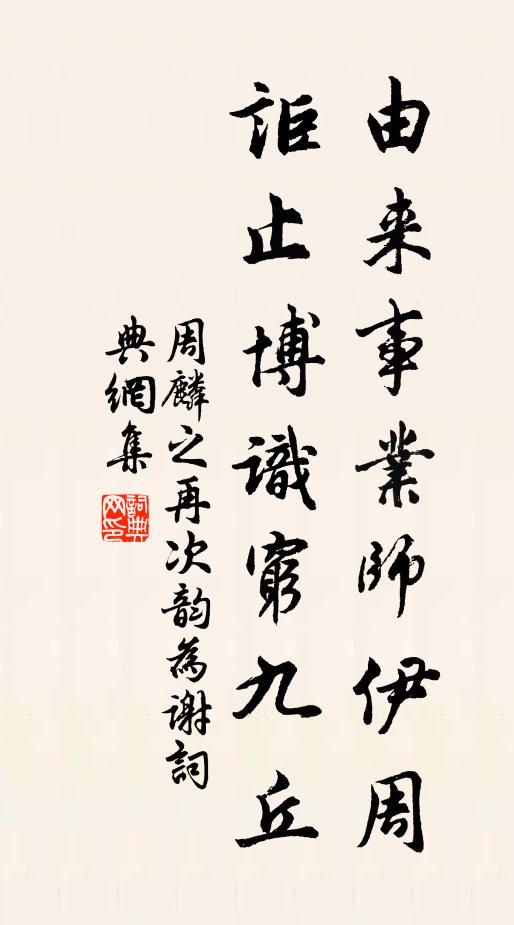 由来事業師伊周
詎止博識窮九丘
周麟之再次韵為谢詞
典網集
詞典
网印